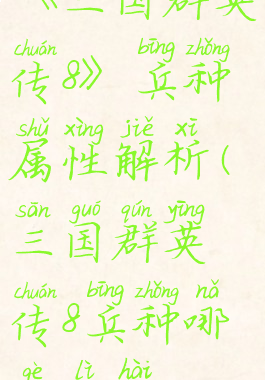 《三国群英
chuán bīng zhǒng
传8》 兵种
shǔ xìng jiě xī
属性解析(
sān guó qún yīng
三国群英
chuán bīng zhǒng nǎ
传8兵种哪
gè lì hài